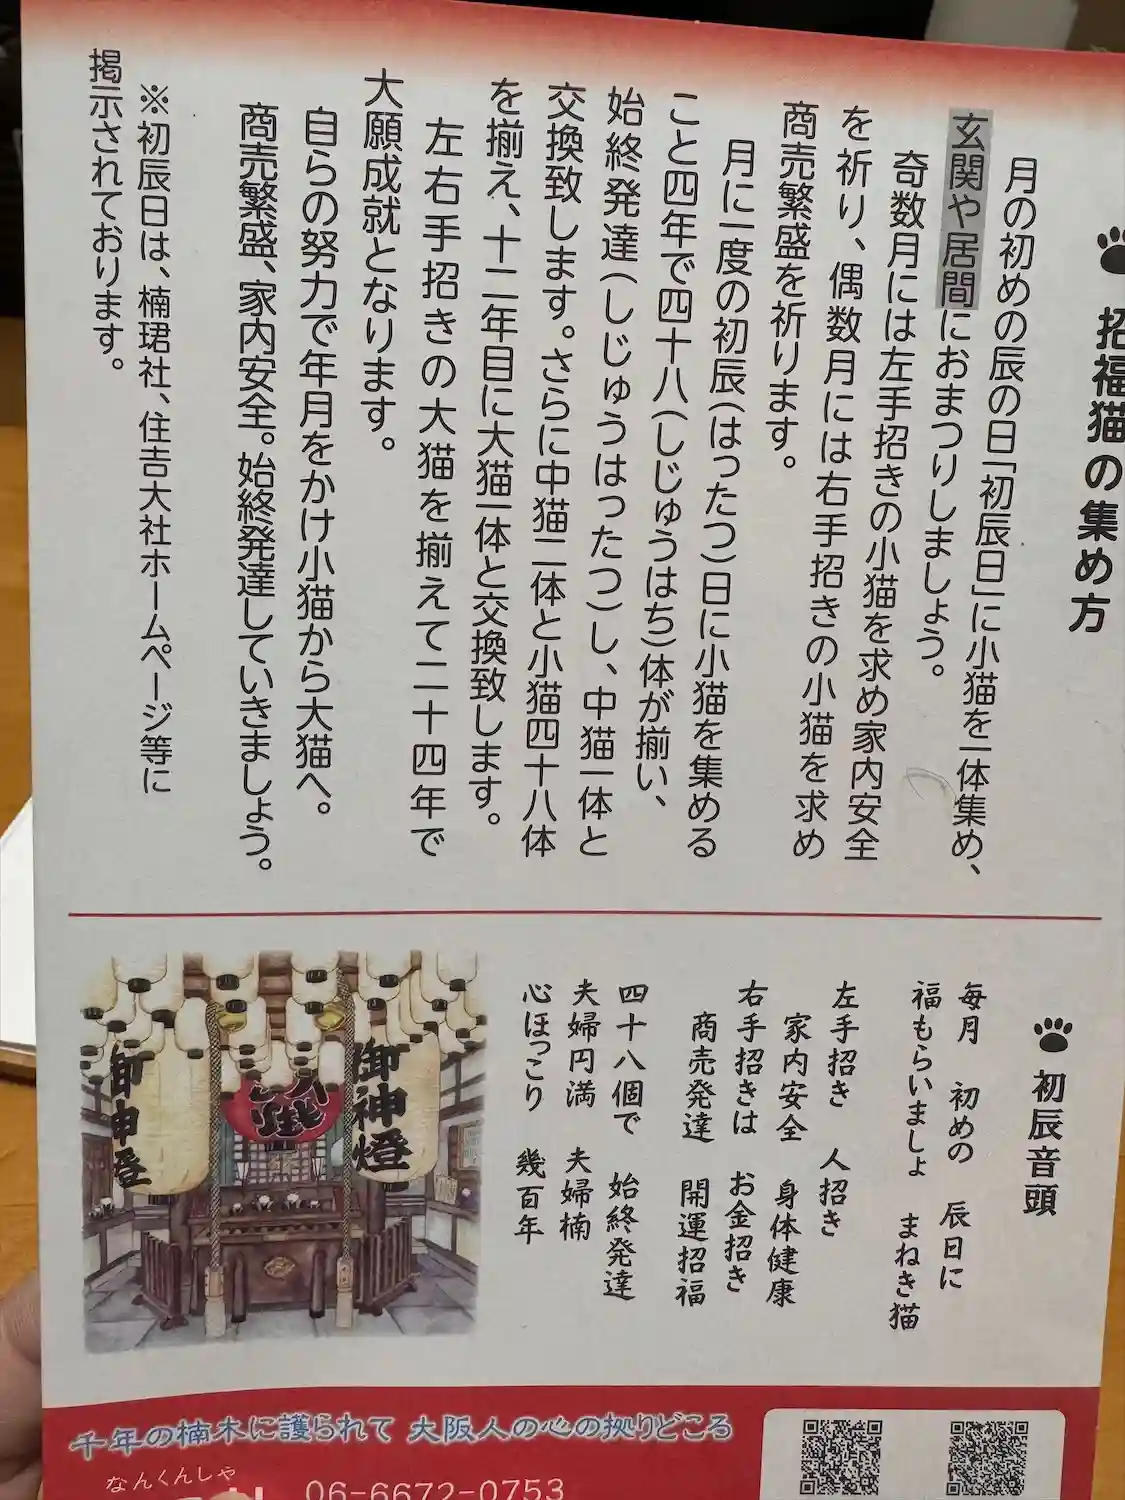 招福猫の集め方
月の初めの辰の日「初辰日」に小猫を一体集め、
玄関や居間におまつりしましょう。
奇数月には左手招きの小猫を求め家内安全
を祈り、偶数月には右手招きの小猫を求め
商売繁盛を祈ります。
月に一度の初辰(はったつ)日に小猫を集める
こと四年で四十八(しじゅうはち)体が揃い、
始終発達(しじゅうはったつ)し、中猫一体と
交換致します。さらに中猫二体と小猫四十八体
を揃え、十二年目に大猫一体と交換致します。
左右手招きの大猫を揃えて二十四年で
大願成就となります。
自らの努力で年月をかけ小猫から大猫へ。
商売繁盛、家内安全。始終発達していきましょう。
※初辰日は、楠珺社、住吉大社ホームページ等に
掲示されております。
初辰音頭
毎月 初めの 辰日に
福もらいましょ まねき猫
左手招き 人招き
家内安全 身体健康
右手招きは お金招き
商売発達 開運招福
四十八個で 始終発達
夫婦円満 夫婦楠
心ほっこり 幾百年
御神燈
御神燈
千年の楠木に護られて 大阪人の心の拠りどころ
なんくんしゃ
06-6672-0753